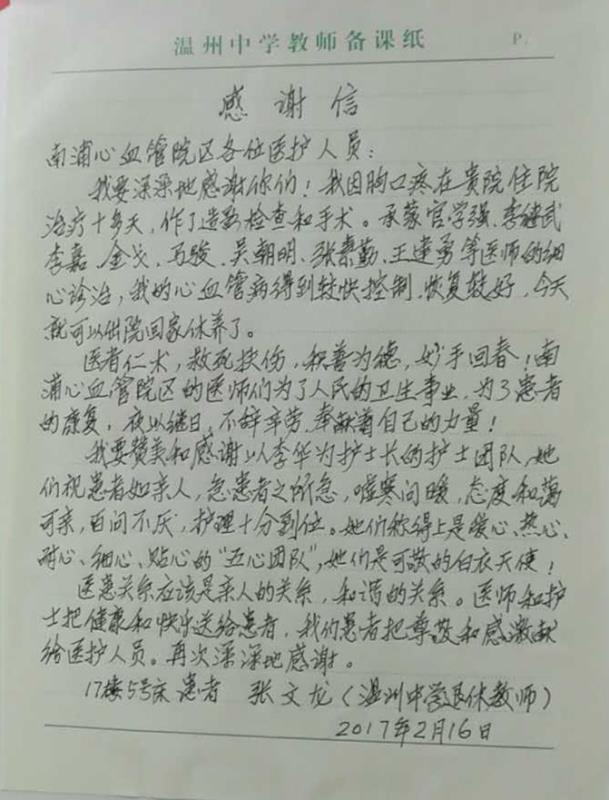 温州中学教师备课纸 P.
感谢信
南浦心血管院区各位医护人员:
我要深深地感谢你们!我因胸口疼在贵院住院
治疗十多天,作了造影检查和手术。承蒙官学强、李继武
李嘉、金戈、马骏、吴朝明、张素勤、王達勇等医师的细
心诊治,我的心血管病得到较快控制,恢复较好,今天
就可以出院回家休养了。
医者仁术,救死扶伤,积善为德,妙手回春!南
浦心血管院区的医师们为了人民的卫生事业,为了患者
的康复,夜以继日,不辞辛劳,奉献着自己的力量!
我要赞美和感谢以李华为护士长的护士团队,她
们视患者如亲人,急患者之所急,嘘寒问暖,态度和蔼
可亲,百问不厌,护理十分到位。她们称得上是爱心、热心、
耐心、细心、贴心的“五心团队”,她们是可敬的白衣天使!
医患关系应该是亲人的关系,和谐的关系。医师和护
士把健康和快乐送给患者,我们患者把尊敬和感激献
给医护人员。再次深深地感谢。
17楼5号床患者 张文龙(温州中学退休教师)
2017年2月16日